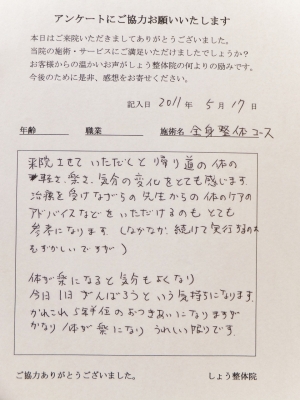 アンケートにご協力お願いいたします
本日はご来院いただきましてありがとうございました。
当院の施術・サービスにご満足いただけましでしょうか?
お客様からの温かいお声がしょう整体院の何よりの励みです。
今後のために是非、感想をお寄せください。
記入日 2011年 5月17日
年齢 職業 施術名 全身整体コース
来院させて いただくと 帰り道の 体の
軽さ、楽さ、気分の変化をとても感じます.
治療を受けながらの 先生からの 体のケアの
アドバイスなどを いただけるのも とても
参考になります (なかなか 続けて実行するのは
むずかしいですが)
体が楽になると 気分も よくなり
今日1日 がんばろうと いう気持ちになります.
かれこれ 5年位の おつきあいになりますが
かなり 体が楽になり うれしい限りです.
ご協力ありがとうございました。 しょう整体院